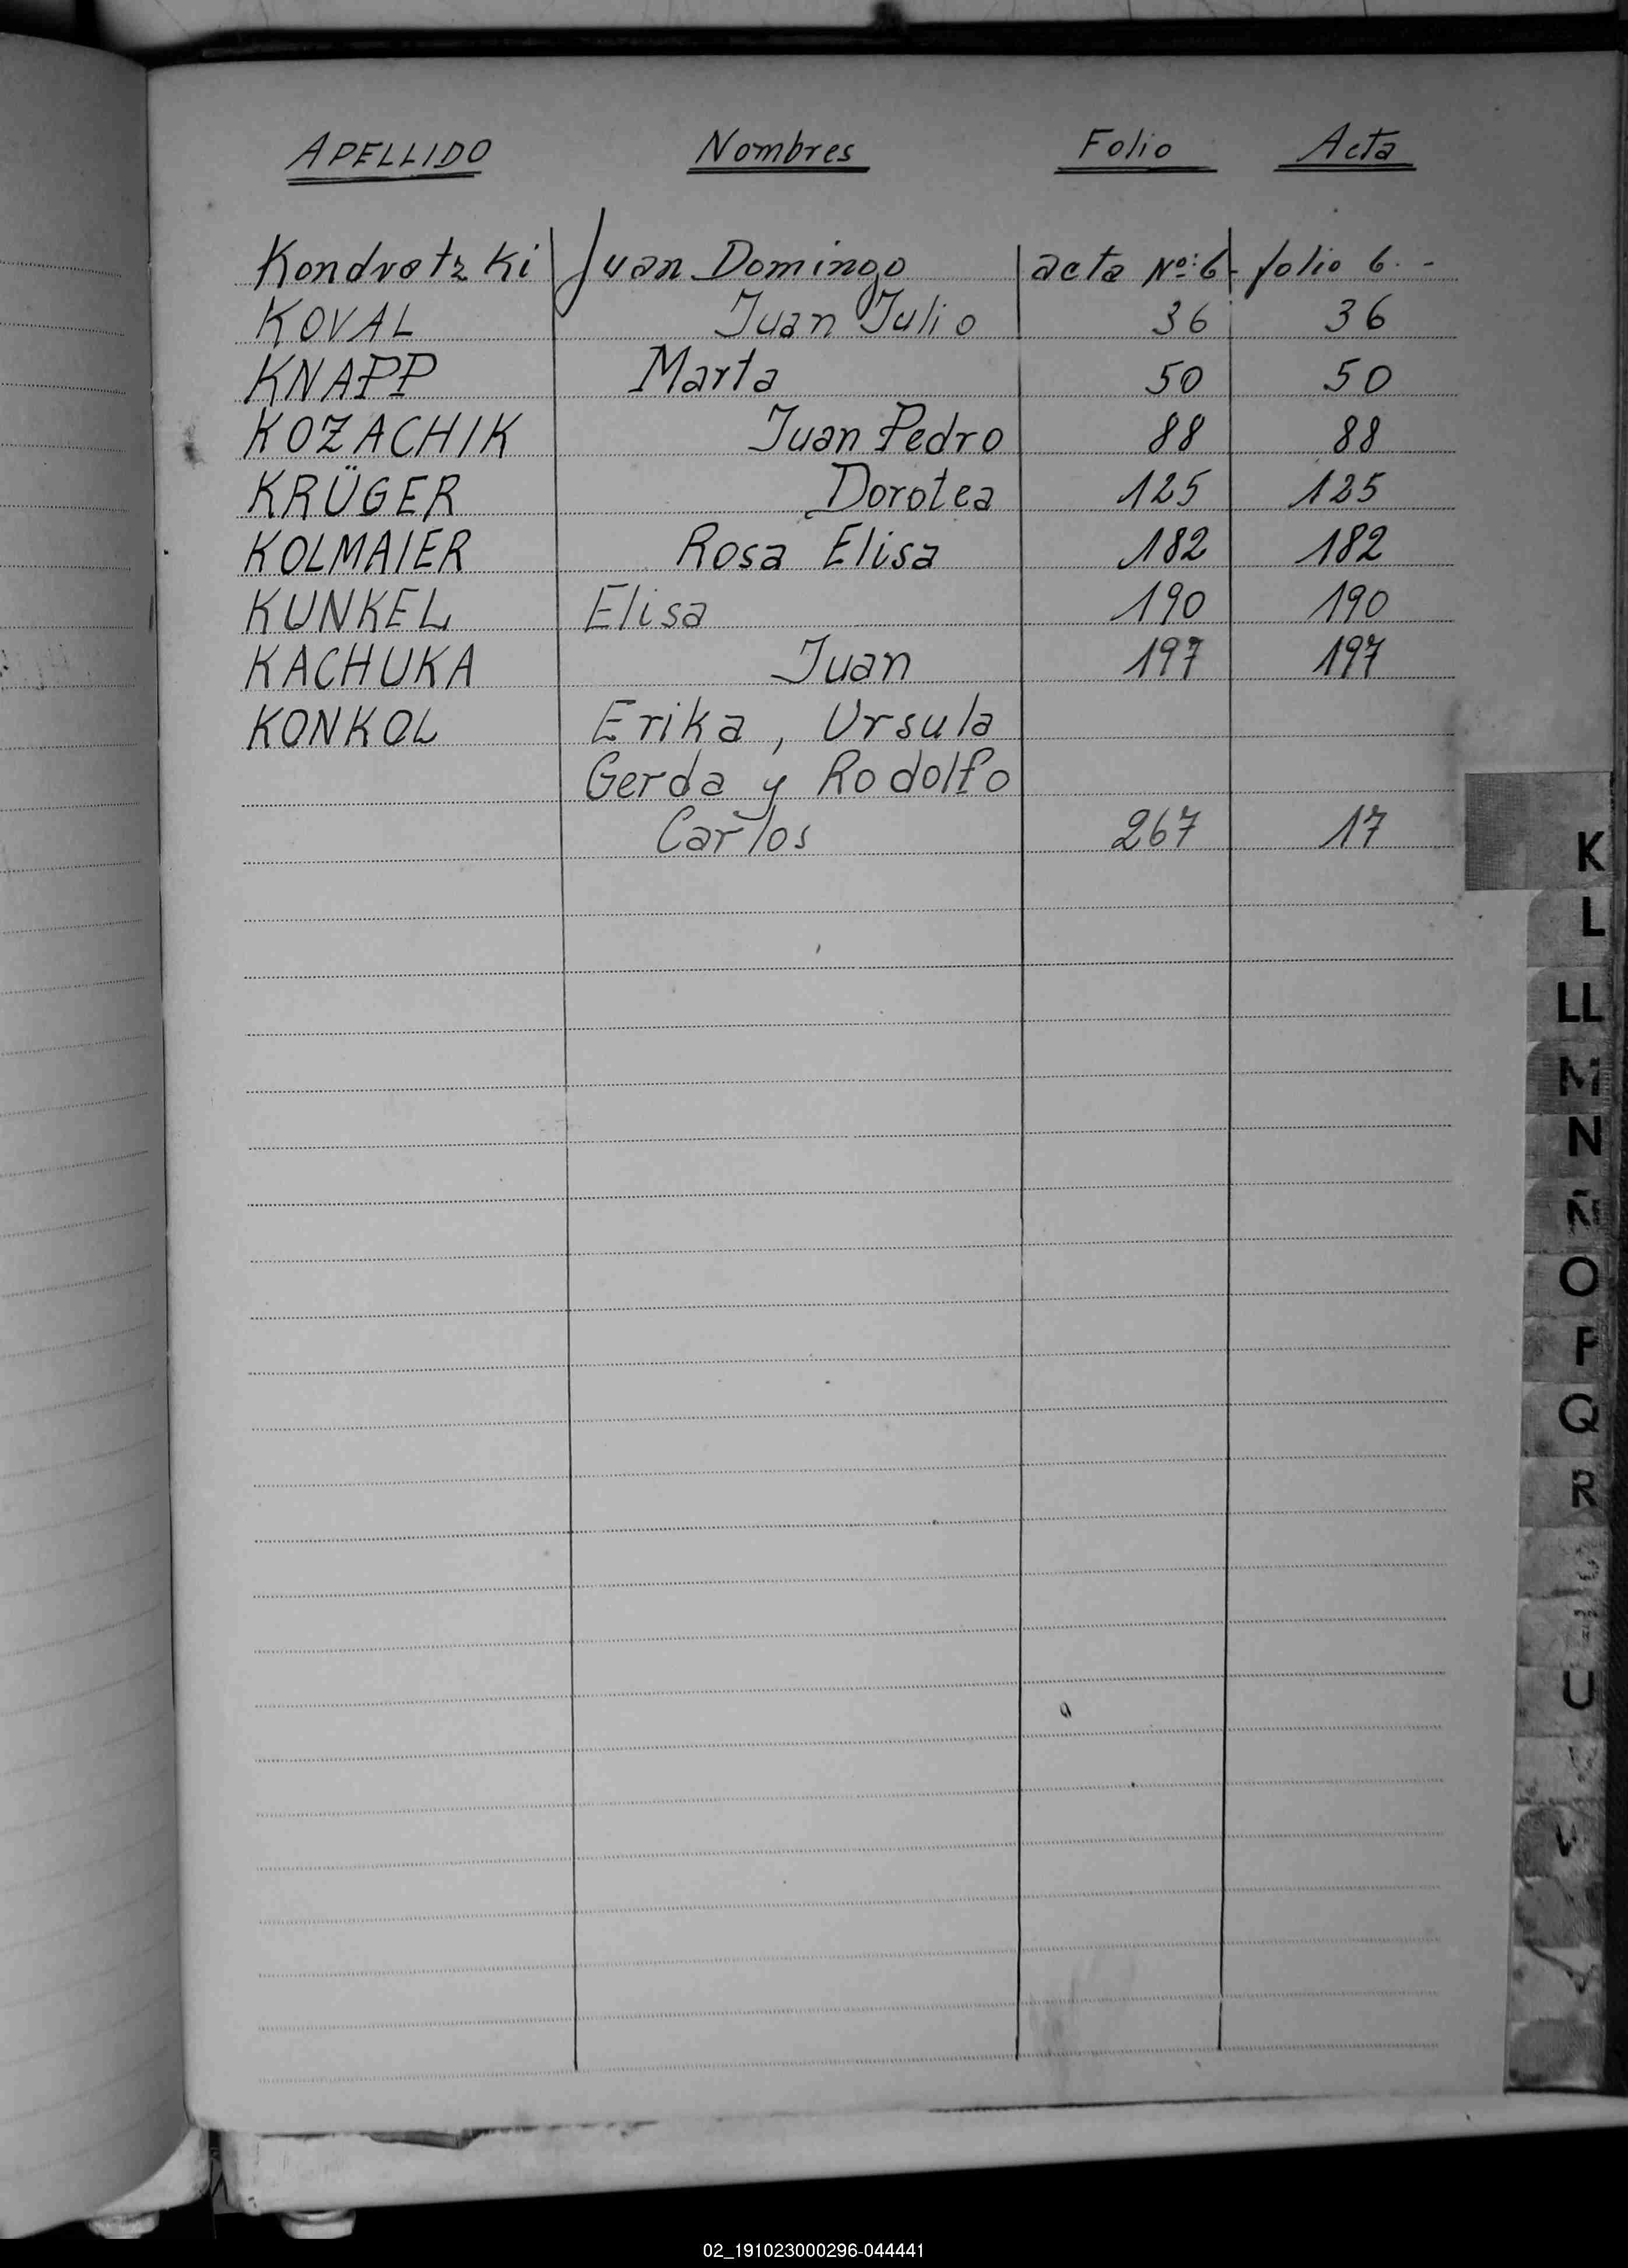 APELLIDO Nombres Folio Acta
Kondratzki Juan Domingo acta Nº: 6 - folio 6. -
KOVAL Juan Julio 36 36
KNAPP Marta 50 50
KOZACHIK Juan Pedro 88 88
KRÜGER Dorotea 125 125
KOLMAIER Rosa Elisa 182 182
KUNKEL Elisa 190 190
KACHUKA Juan 197 197
KONKOL Erika, Ursula
Gerda y Rodolfo
Carlos 267 17
K
L
LL
M
N
Ñ
O
P
Q
R
U
V
02_191023000296-044441